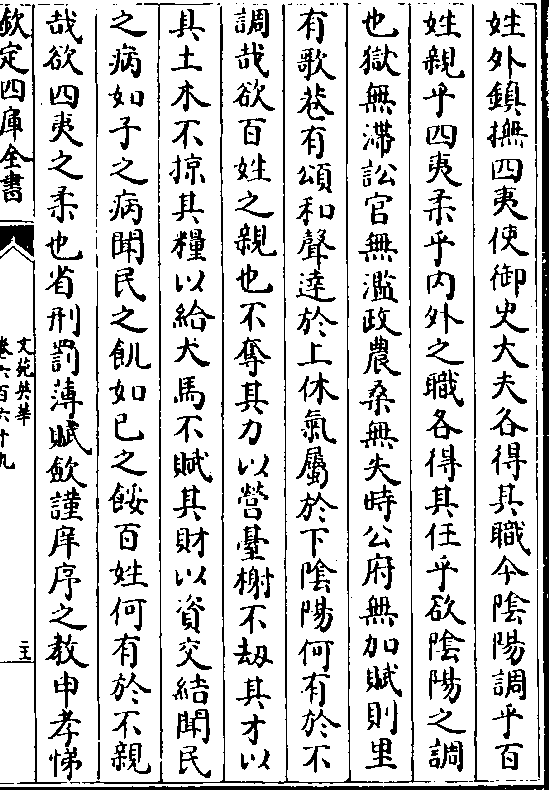 姓外鎮撫四夷使御史大夫各得其職今陰陽調乎百
姓親乎四夷柔乎内外之職各得其任乎欲陰陽之調
也獄無滯訟官無濫政農桑無失時公府無加賦則里
有歌巷有頌和聲達於上休氣屬於下陰陽何有於不
調哉欲百姓之親也不奪其力以營臺榭不刼其才以
具土木不掠其糧以給犬馬不賦其財以資交結聞民
之病如子之病聞民之飢如已之餒百姓何有於不親
哉欲四夷之柔也省刑罰薄賦歛謹庠序之教申孝悌
欽定四庫全書
文苑英華
卷六百六十九